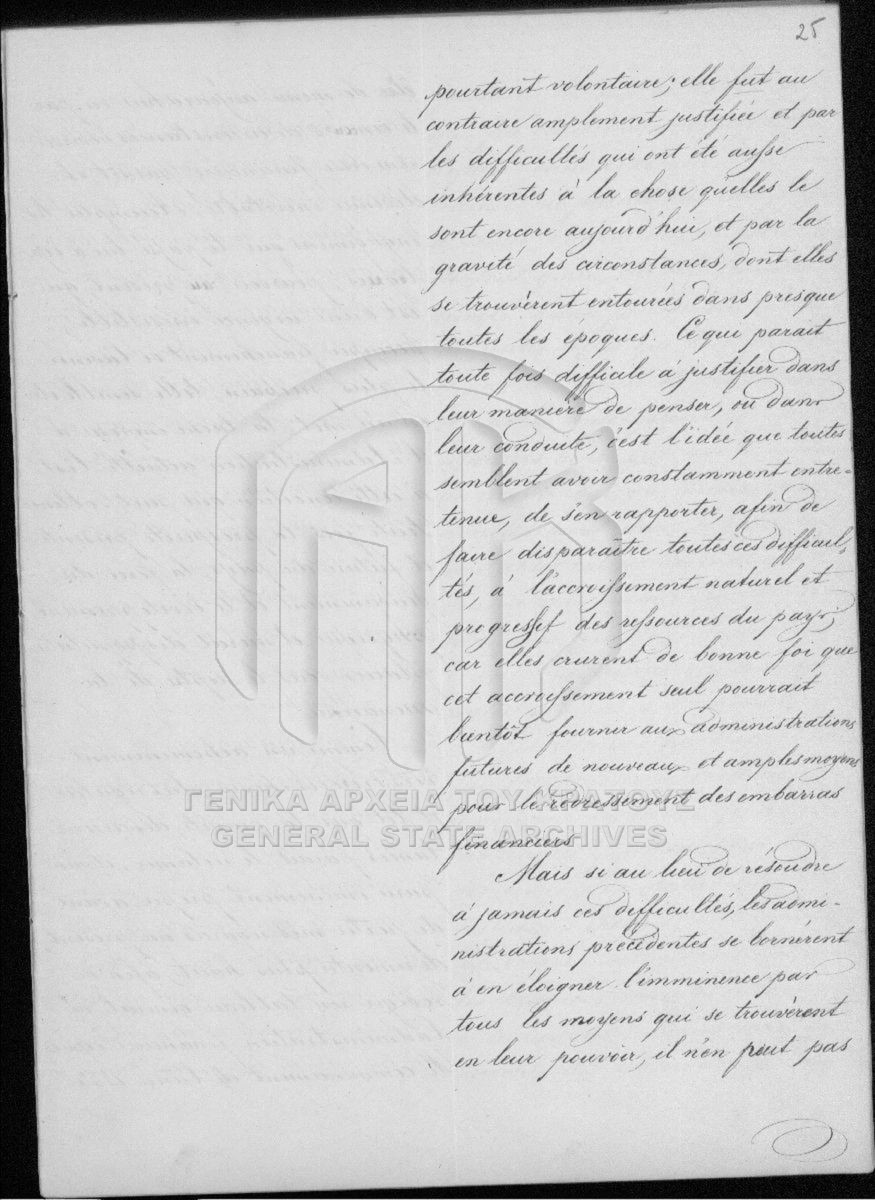 25
pourtant volontaire; elle fut au
contraire amplement justifiée et par
les difficultés qui ont été aussi
inhérentes à la chose qu'elles le
sont encore aujourd'hui, et par la
gravité des circonstances, dont elles
se trouvèrent entourées dans presque
toutes les époques. Ce qui parait
toute fois difficile à justifier dans
leur manière de penser, ou dans
leur conduite, c'est l'idée que toutes
semblent avoir constamment entre-
tenue, de s'en rapporter, afin de
faire disparaître toutes ces difficul-
tés, à l'accroissement naturel et
progressif des ressources du pays;
car elles crurent de bonne foi que
cet accroissement seul pourrait
bientôt fournir aux administrations
futures de nouveaux et amples moyens
pour le redressement des embarras
financiers
ΓΕΝΙΚΑ ΑΡΧΕΙΑ ΤΟΥ ΚΡΑΤΟΥΣ
GENERAL STATE ARCHIVES
Mais si au lieu de résoudre
à jamais ces difficultés, les admi-
nistrations précédentes se bornèrent
à en éloigner l'imminence par
tous les moyens qui se trouvèrent
en leur pouvoir, il n'en peut pas